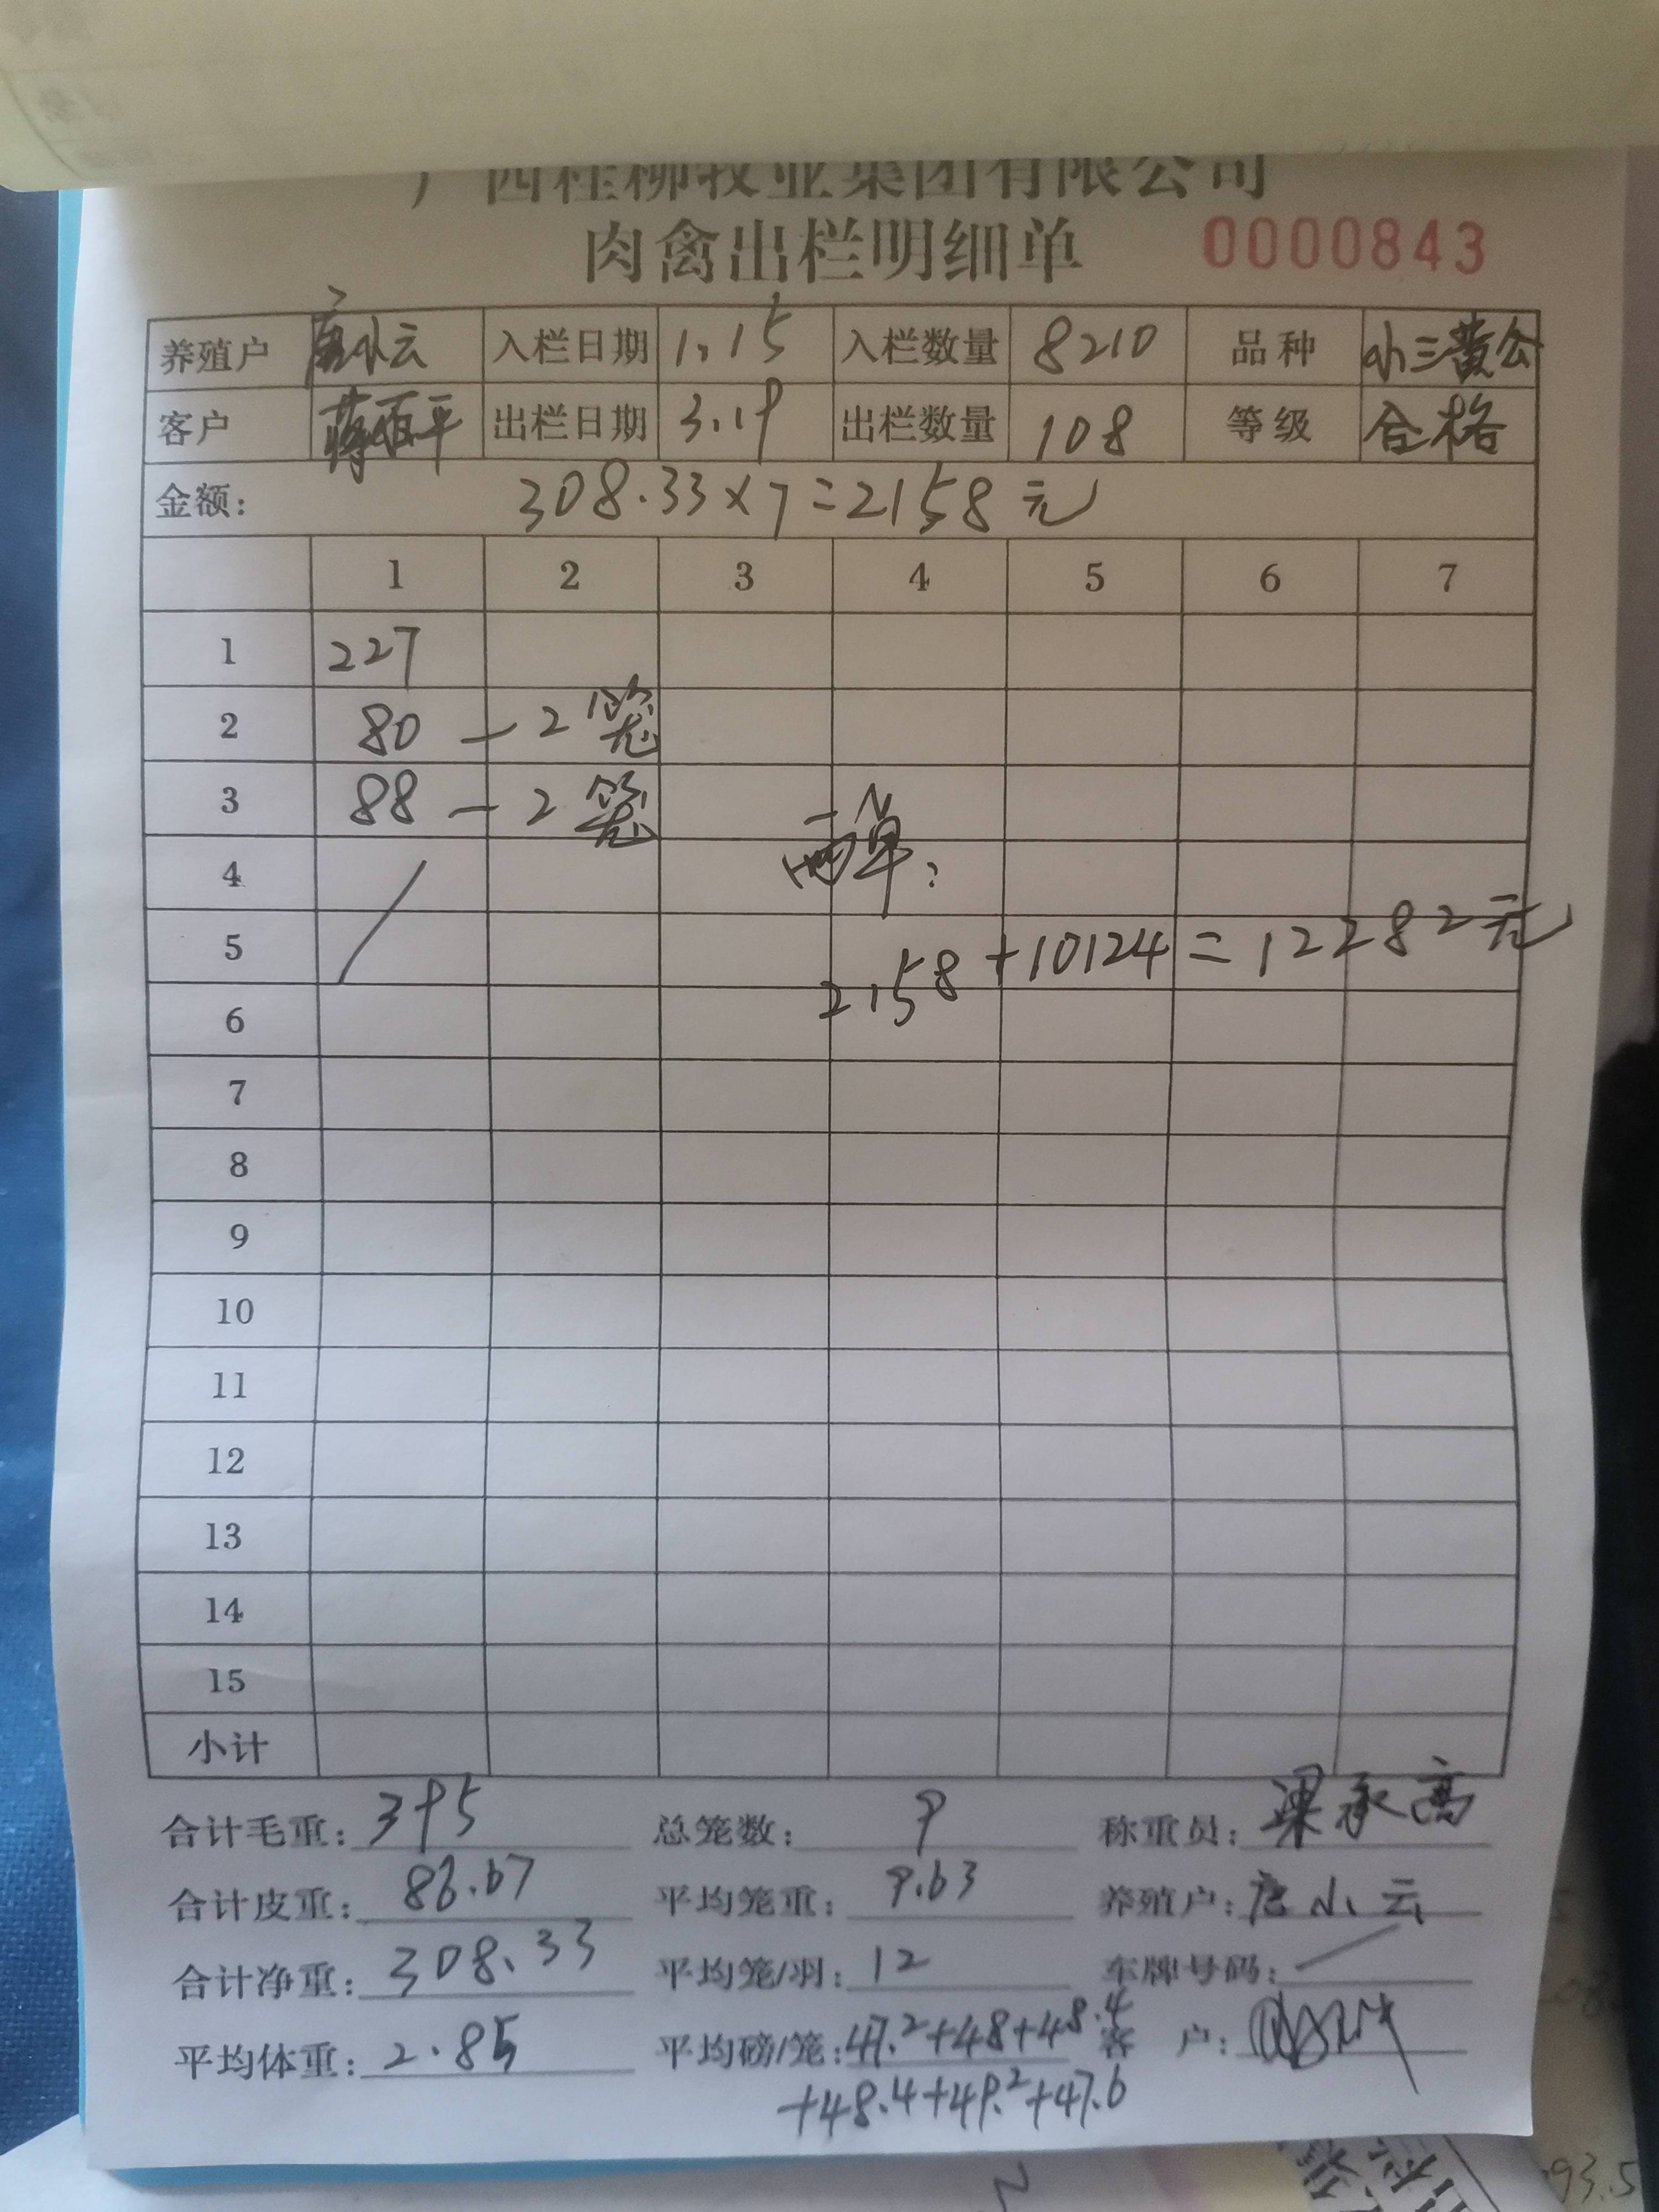 广西桂柳牧业集团有限公司
肉禽出栏明细单 0000843
养殖户 唐小云 入栏日期 1.15 入栏数量 8210 品种 小三黄公
客户 蒋 平 出栏日期 3.19 出栏数量 108 等级 合格
金额: 308.33×7=2158元
1 2 3 4 5 6 7
1 227
2 80 — 2笼
3 88 — 2笼
两单:
4
5 2158+10124=12282元
6
7
8
9
10
11
12
13
14
15
小计
合计毛重: 395 总笼数: 9 称重员: 梁承高
合计皮重: 86.67 平均笼重: 9.63 养殖户: 唐小云
合计净重: 308.33 平均笼/羽: 12 车牌号码:
平均体重: 2.85 平均磅/笼: 47.2+48+48.4 客 户:
+48.4+49.2+47.6
93.5